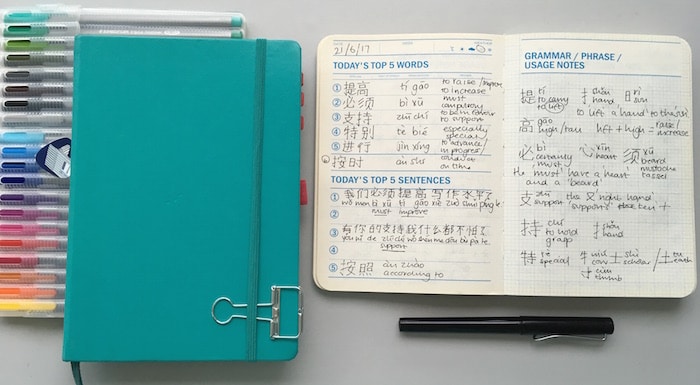 21/6/17
TODAY'S TOP 5 WORDS
① 提高 tí gāo to raise/improve to increase
② 必须 bì xū must compulsory
③ 支持 zhī chí to be in favour to support
④ 特别 tè bié especially special
⑤ 进行 jìn xíng to advance in progress/ conduct
⑥ 按时 àn shí on time
TODAY'S TOP 5 SENTENCES
① 我们必须提高写作水平了
wǒ men bì xū tí gāo xiě zuò shuǐ píng le
② must improve
③ 有你的支持我什么都不怕了
yǒu nǐ de zhī chí wǒ shén me dōu bù pà le
④ support
⑤ 按照 àn zhào according to
GRAMMAR / PHRASE /
USAGE NOTES
提 tí to carry (to lift) 扌 shǒu hand 日 rì sun
to lift a hand to the sun
高 gāo high/tall lift + high = raise/ increase
必 bì certainly must 心 xīn heart 须 xū beard mustache tassel
He must have a heart
and a 'beard'
支 zhī support this 又 right hand 'supports'
持 chí to hold grasp 扌 shǒu hand
特 tè special 牛 niú cow 士 shì scholar / 土 tǔ earth
寸 cùn thumb